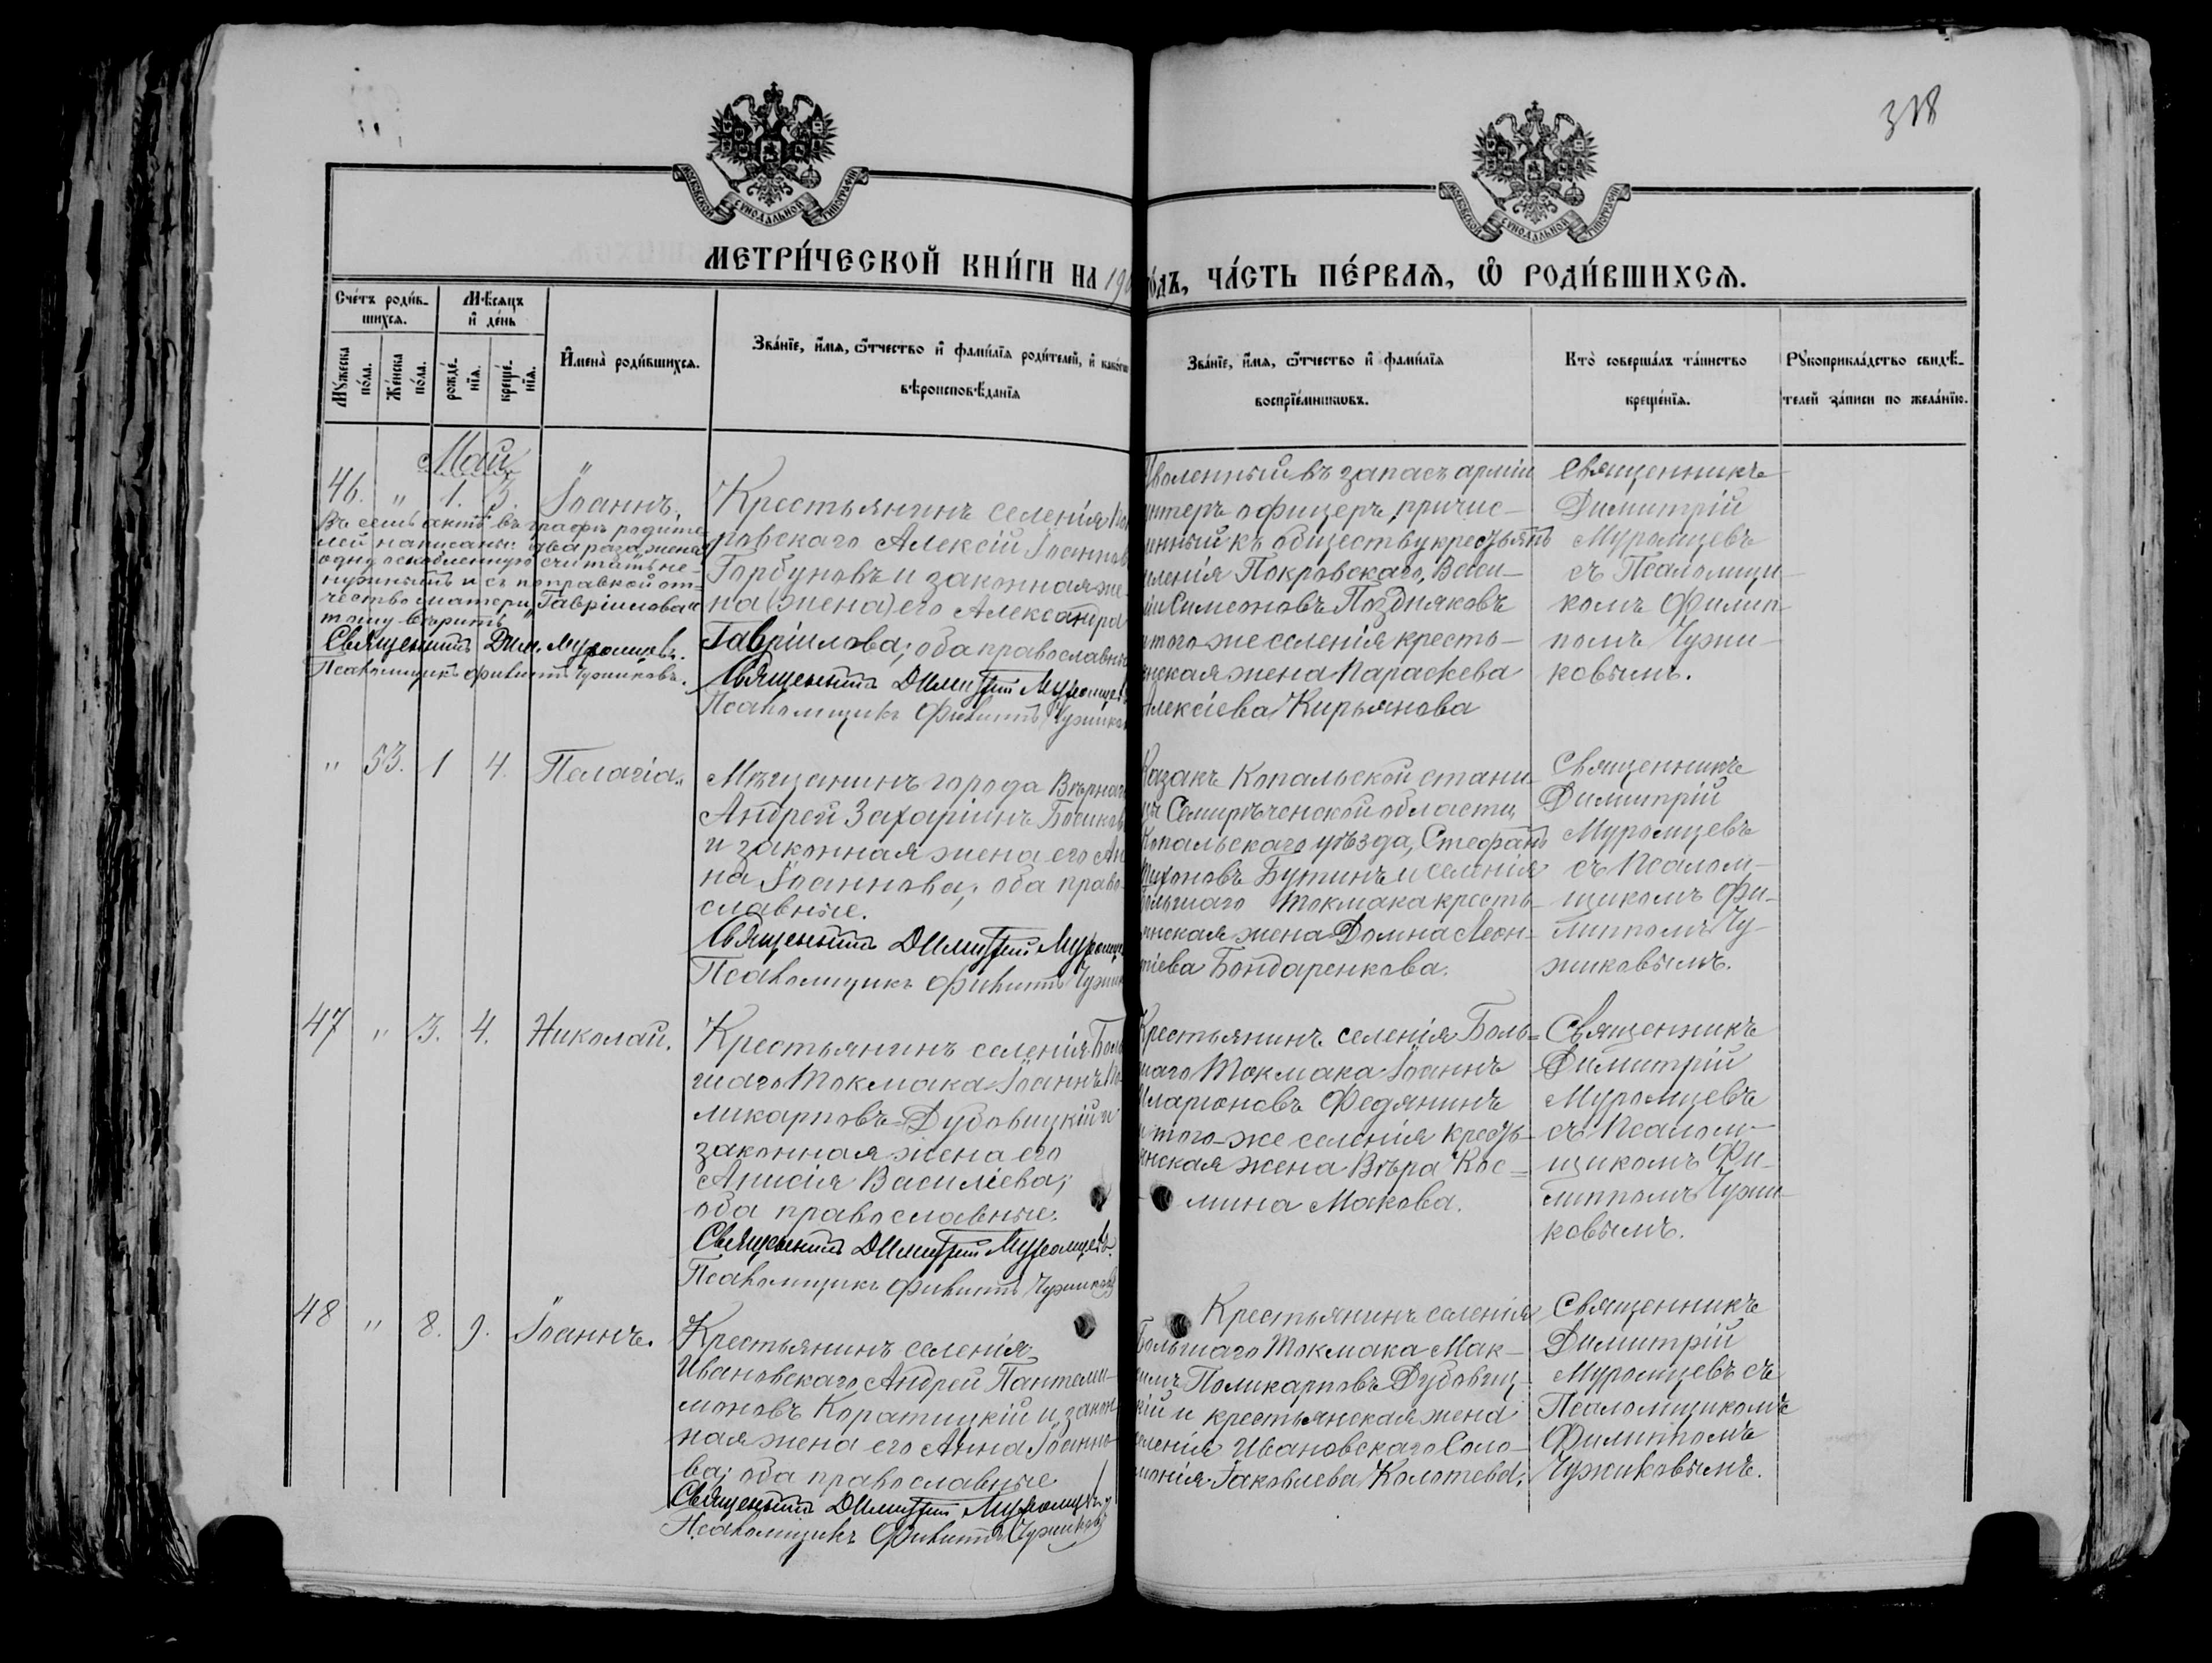 318
МОСКОВСКОЙ СѴНОДАЛЬНОЙ ТИПОГРАФІИ
МОСКОВСКОЙ СѴНОДАЛЬНОЙ ТИПОГРАФІИ
МЕТРИ́ЧЕСКОЙ КНИ́ГИ НА 190
о́дъ, ЧА́СТЬ ПЕ́РВАѦ, Ѡ РОДИ́ВШИХСѦ.
Сче́тъ роди́в-
шихсѧ.
Мѣсяцъ
и҆ де́нь
Мꙋ́жеска
по́ла.
Же́нска
по́ла.
рожде́-
нїѧ.
креще́-
нїѧ.
И҆мена̀ роди́вшихсѧ.
Зва́нїе, и҆́мѧ, ѻ҆́тчество и҆ фами́лїѧ роди́телей, и҆ како́гѡ
вѣроисповѣ́данїѧ
Зва́нїе, и҆́мѧ, ѻ҆́тчество и҆ фами́лїѧ
воспрїе́мникѡвъ.
Кто̀ соверша́лъ та́инство
креще́нїѧ.
Рꙋкоприкла́дство свидѣ́-
телей за́писи по жела́нїю.
Май
46. " 1. 3. Іоаннъ.
Въ семъ актѣ въ графѣ родите
лей написаны два раза „жена"
одну оскобленную считать не-
нужнымъ и съ поправкой от-
чество матери „Гавріилова" и
тому вѣрить
Священникъ Дим. Муромцевъ.
Псаломщикъ Филиппъ Чужиковъ.
Крестьянинъ селенія По
ровскаго Алексій Іоаннов
Горбуновъ и законная же
на (жена) его Александра
Гавріилова; оба православны
Священникъ Димитрій Муромцев
Псаломщикъ Филиппъ Чужиков
воленный въ запасъ арміи
унтеръ офицеръ, причис-
енный къ обществу крестьянъ
еленія Покровскаго, Васи-
ій Симеоновъ Поздняковъ
того же селенія кресть-
нская жена Параскева
Алексіева Кирьянова
Священникъ
Димитрій
Муромцевъ
съ Псаломщи-
комъ Филип-
помъ Чужи-
ковымъ.
" 53. 1 4. Пелагіа.
Мѣщанинъ города Вѣрнаго
Андрей Захаріинъ Босиков
и законная жена его Ан
на Іоаннова; оба право-
славные.
Священникъ Димитрій Муромце
Псаломщикъ Филиппъ Чужик
Казакъ Копальской стани
цы Семирѣченской области,
Копальскаго уѣзда, Стефанъ
Тихоновъ Бутинъ и селенія
Большаго Токмака кресть-
янская жена Домна Леон-
тіева Бондаренкова.
Священникъ
Димитрій
Муромцевъ
съ Псалом-
щикомъ Фи-
липпомъ Чу-
жиковымъ.
47 " 3. 4. Николай.
Крестьянинъ селенія Боль
шаго Токмака Іоаннъ По-
ликарповъ Дубовицкій и
законная жена его
Анисія Василіева;
оба православные.
Священникъ Димитрій Муромцевъ.
Псаломщикъ Филиппъ Чужиковъ
Крестьянинъ селенія Боль-
шаго Токмака Іоаннъ
Иларіоновъ Федянинъ
и того-же селенія кресть-
янская жена Вѣра Кос-
мина Макова.
Священникъ
Димитрій
Муромцевъ
съ Псалом-
щикомъ Фи-
липпомъ Чужи-
ковымъ.
48 " 8. 9. Іоаннъ.
Крестьянинъ селенія
Ивановскаго, Андрей Пантелеи-
моновъ Коратицкій и закон
ная жена его Анна Іоанно-
ва; оба православные
Священникъ Димитрій Муромцевъ
Псаломщикъ Филиппъ Чужиковъ
Крестьянинъ селенія
Большаго Токмака Мак-
симъ Поликарповъ Дубовиц-
кій и крестьянская жена
селенія Ивановскаго Соло-
монія Іаковлева Колотева.
Священникъ
Димитрій
Муромцевъ съ
Псаломщикомъ
Филиппомъ
Чужиковымъ.